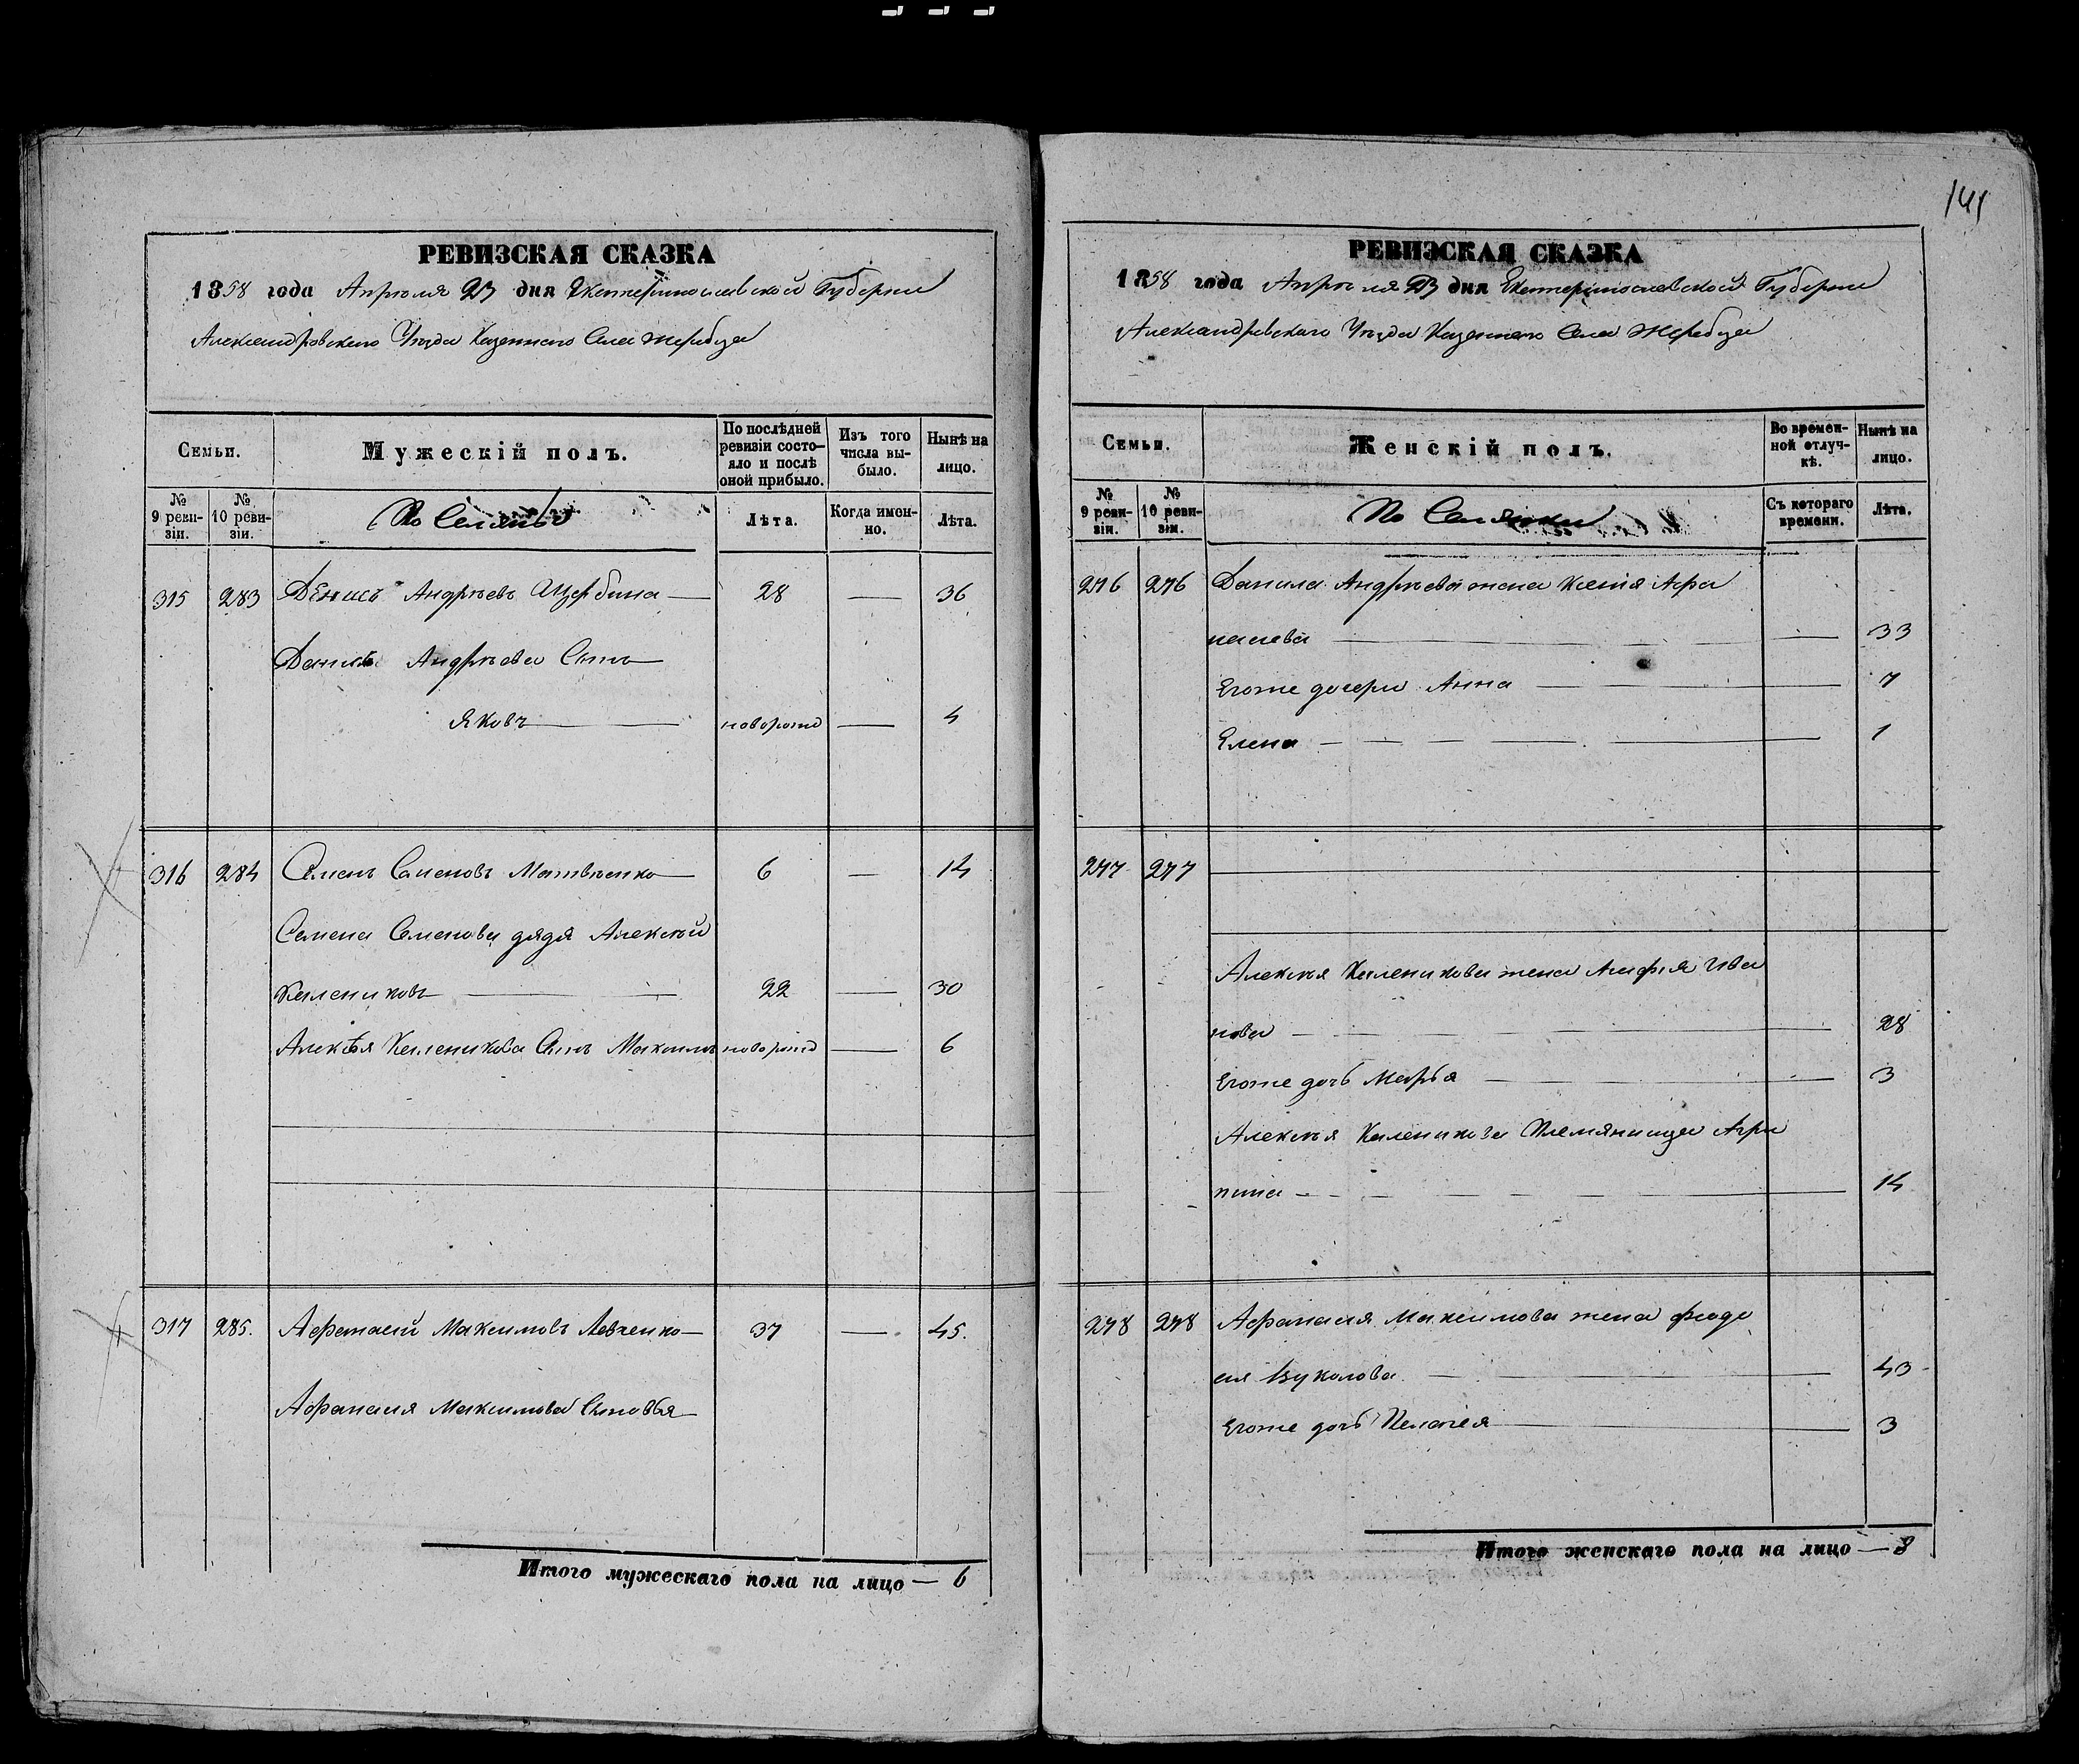 141
РЕВИЗСКАЯ СКАЗКА
1858 года Апреля 23 дня Екатеринославской Губернии
Александровскаго Уѣзда Казеннаго Села Жеребца
Семьи.
Мужескій полъ.
По послѣдней ревизіи состояло и послѣ оной прибыло.
Изъ того числа выбыло.
Нынѣ на лицо.
№ 9 ревизіи.
№ 10 ревизіи.
Лѣта.
Когда именно.
Лѣта.
315 283 Денисъ Андреевъ Щербина — 28 — 36
Андреева Сынъ
Яковъ — новорожд — 4
316 284 Семенъ Семеновъ Матвѣенко — 6 — 14
Семена Семенова дядя Алексѣй
Калениковъ — 22 — 30
Алексѣя Каленикова Сынъ Максимъ новорожд — 6
317 285. Афанасій Максимовъ Левченко — 37 — 45.
Афанасия Максимова Сыновья
Итого мужескаго пола на лицо — 6
РЕВИЗСКАЯ СКАЗКА
1858 года Апреля 23 дня Екатеринославской Губернии
Александровскаго Уѣзда Казеннаго Села Жеребца
Семьи.
Женскій полъ.
Во временной отлучкѣ.
Нынѣ на лицо.
№ 9 ревизіи.
№ 10 ревизіи.
Съ котораго времени.
Лѣта.
276 276 Данила Андреева жена Ксенія Афа
насиева — 33
Егоже дочери Анна — 7
Елена — 1
277 277
Алексѣя Каленикова жена Ива
нова — 28
Егоже дочь Марья — 3
Алексѣя Каленикова Племянница Агри
пина — 14
278 278 Афанасия Максимова жена Феодо
сия Вуколова — 43
Егоже дочь Пелагея — 3
Итого женскаго пола на лицо — 8